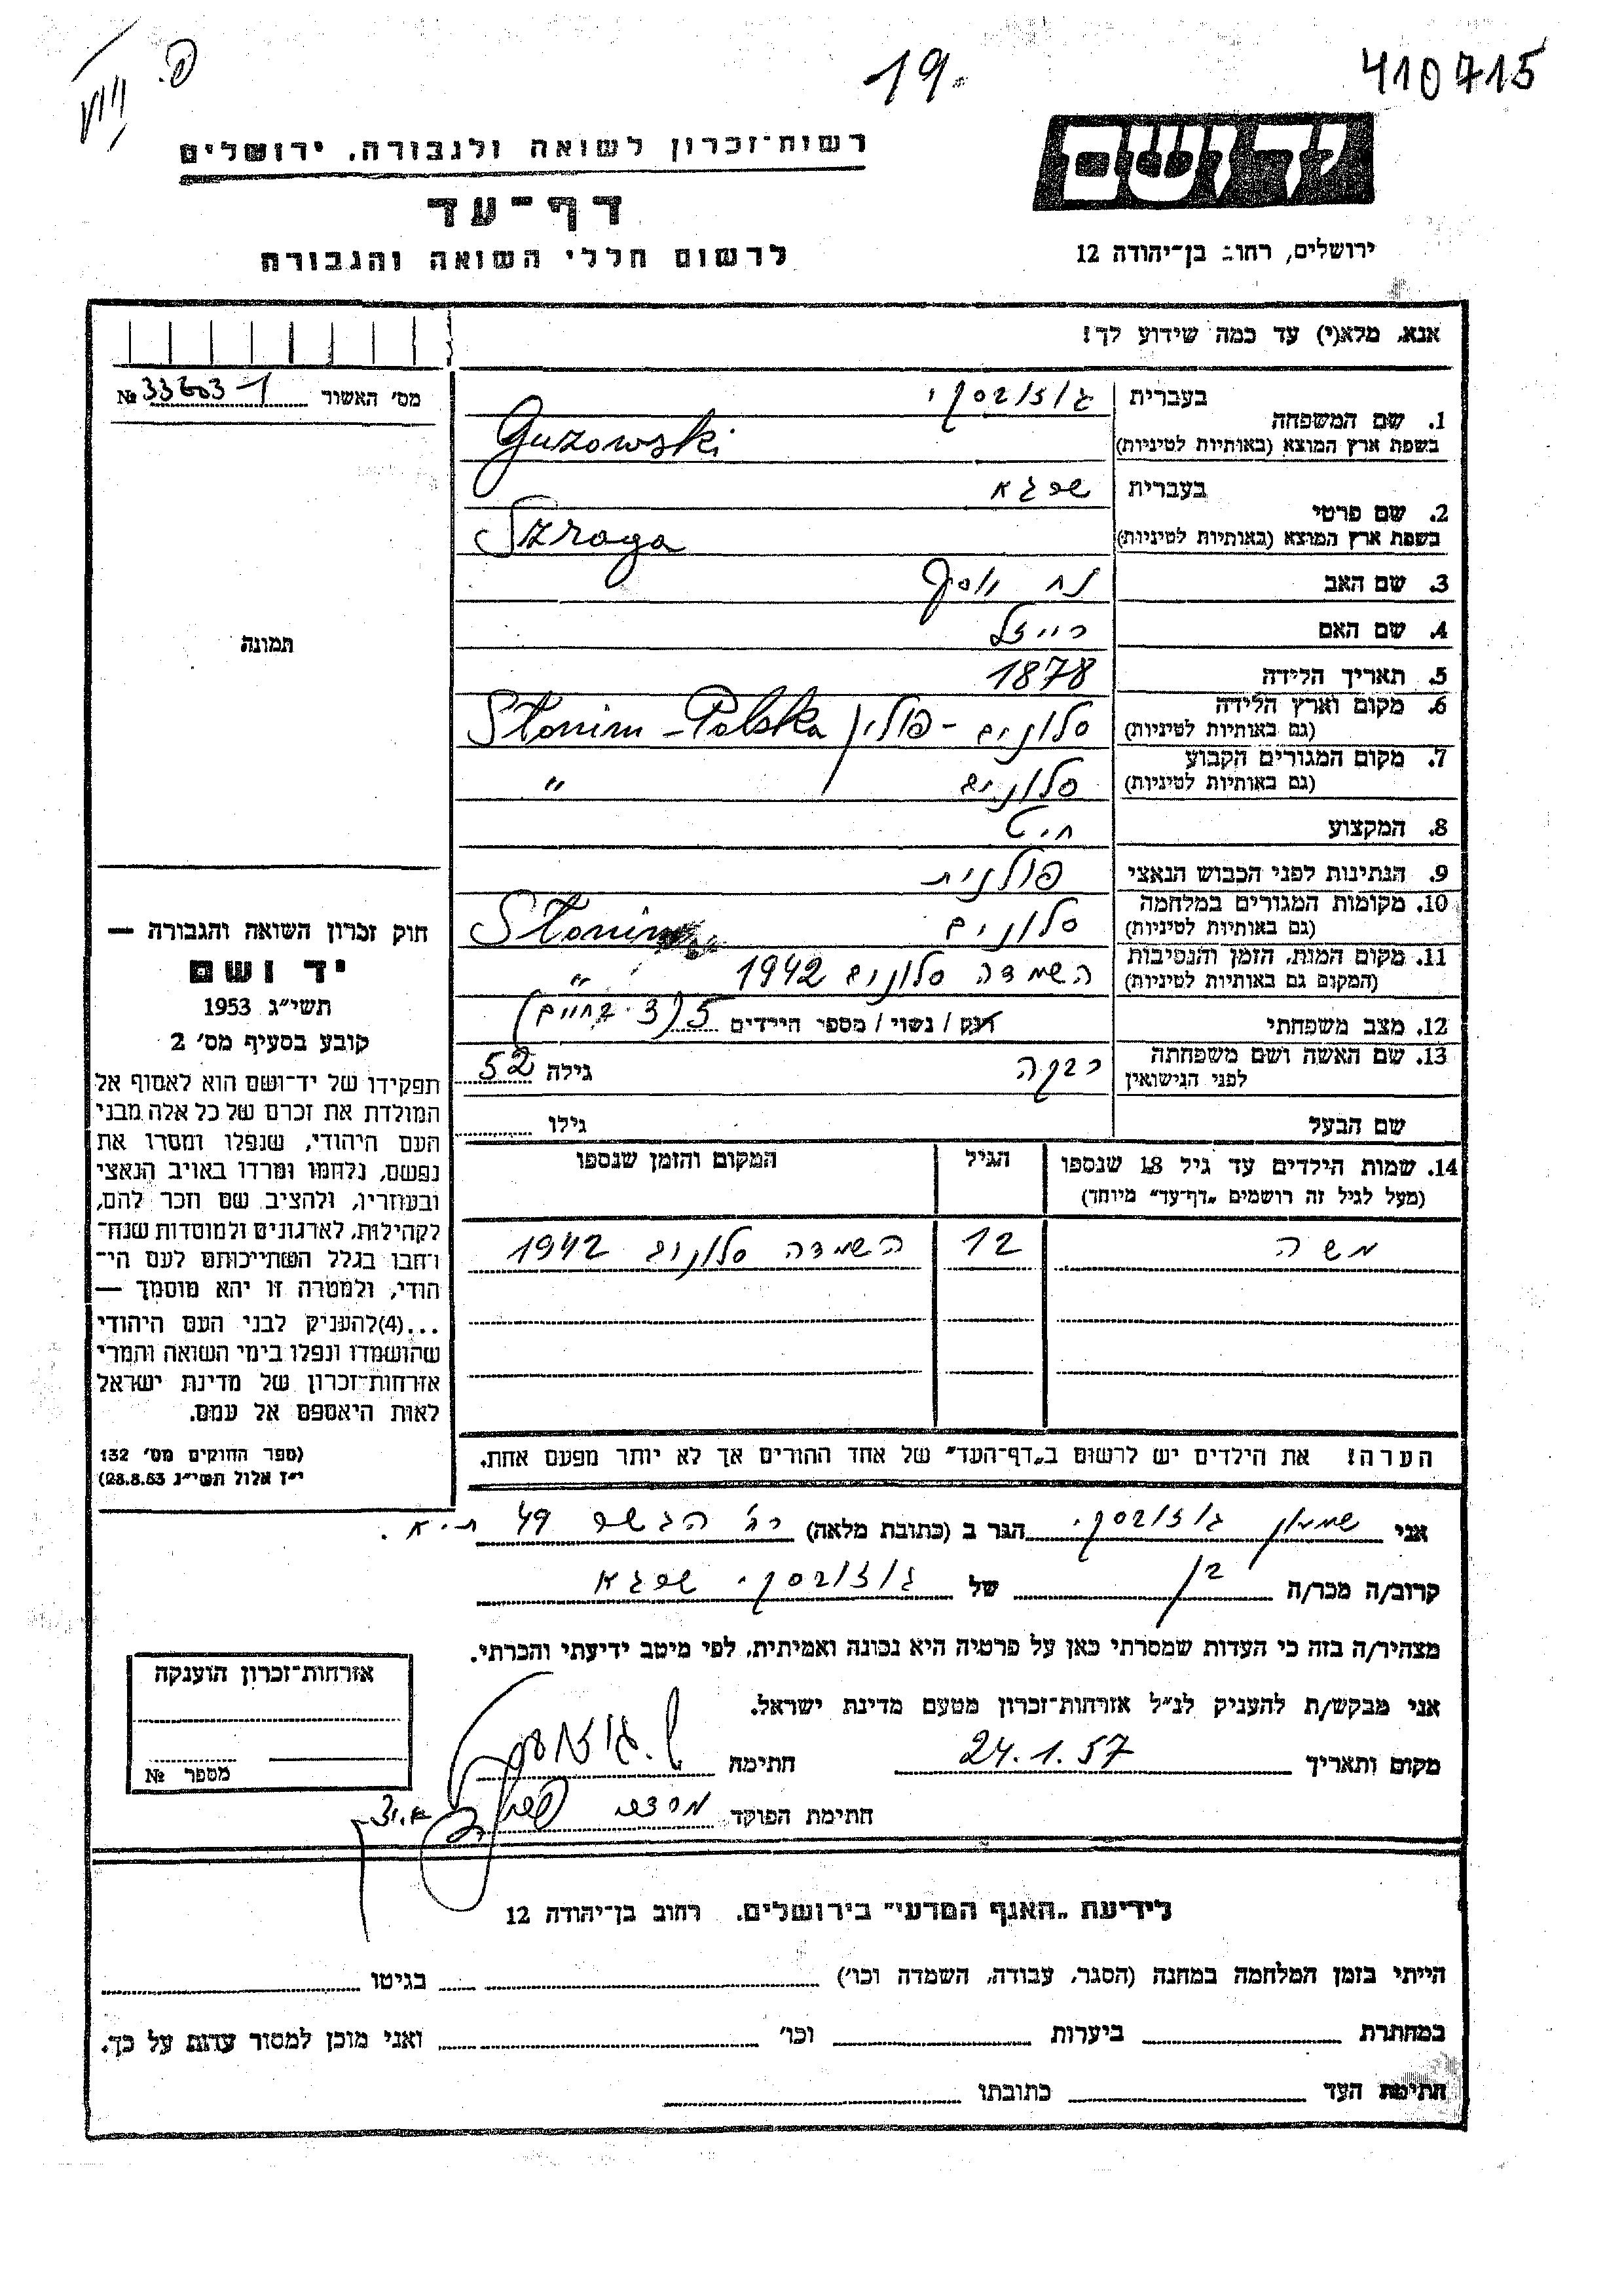 19.
410715
פ.
יד ושם
רשות־זכרון לשואה ולגבורה, ירושלים
דף־עד
לרשום חללי השואה והגבורה
ירושלים, רחוב בן־יהודה 12
אנא, מלא(י) עד כמה שידוע לך!
מס' האשור № 33603-1
1. שם המשפחה בעברית גוזובסקי
בשפת ארץ המוצא (באותיות לטיניות) Guzowski
2. שם פרטי בעברית שרגא
בשפת ארץ המוצא (באותיות לטיניות) Szraga
3. שם האב נח יוסף
4. שם האם רייזל
5. תאריך הלידה 1878
6. מקום וארץ הלידה (גם באותיות לטיניות) סלונים - פולין Słonim - Polska
7. מקום המגורים הקבוע (גם באותיות לטיניות) סלונים "
8. המקצוע חיט
9. הנתינות לפני הכבוש הנאצי פולנית
10. מקומות המגורים במלחמה (גם באותיות לטיניות) סלונים Słonim
11. מקום המות, הזמן והנסיבות (המקום גם באותיות לטיניות) השמדה סלונים 1942 "
12. מצב משפחתי רוק / נשוי / מספר הילדים 5 (3 בחיים)
13. שם האשה ושם משפחתה לפני הנישואין רבקה גילה 52
שם הבעל גילו
14. שמות הילדים עד גיל 18 שנספו (מעל לגיל זה רושמים "דף־עד" מיוחד) הגיל המקום והזמן שנספו
משה 12 השמדה סלונים 1942
הערה! את הילדים יש לרשום ב"דף־העד" של אחד ההורים אך לא יותר מפעם אחת.
תמונה
חוק זכרון השואה והגבורה —
יד ושם
תשי"ג 1953
קובע בסעיף מס' 2
תפקידו של יד־ושם הוא לאסוף אל
המולדת את זכרם של כל אלה מבני
העם היהודי, שנפלו ומסרו את
נפשם, נלחמו ומרדו באויב הנאצי
ובעוזריו, ולהציב שם וזכר להם,
לקהילות, לארגונים ולמוסדות שנח־
רבו בגלל השתייכותם לעם הי־
הודי, ולמטרה זו יהא מוסמך —
...(4)להעניק לבני העם היהודי
שהושמדו ונפלו בימי השואה והמרי
אזרחות־זכרון של מדינת ישראל
לאות היאספם אל עמם.
(ספר החוקים מס' 132
י"ז אלול תשי"ג 28.8.53)
אני שמעון גוזובסקי הגר ב (כתובת מלאה) רח' הגשר 49 ת"א.
קרוב/ה מכר/ה בן של גוזובסקי שרגא
מצהיר/ה בזה כי העדות שמסרתי כאן על פרטיה היא נכונה ואמיתית, לפי מיטב ידיעתי והכרתי.
אני מבקש/ת להעניק לנ"ל אזרחות־זכרון מטעם מדינת ישראל.
מקום ותאריך 24.1.57 חתימה
חתימת הפוקד
אזרחות־זכרון הוענקה
מספר №
לידיעת "האגף המדעי" בירושלים, רחוב בן־יהודה 12
הייתי בזמן המלחמה במחנה (הסגר, עבודה, השמדה וכו') בגיטו
במחתרת ביערות וכו' ואני מוכן למסור עדות על כך.
חתימת העד כתובתו